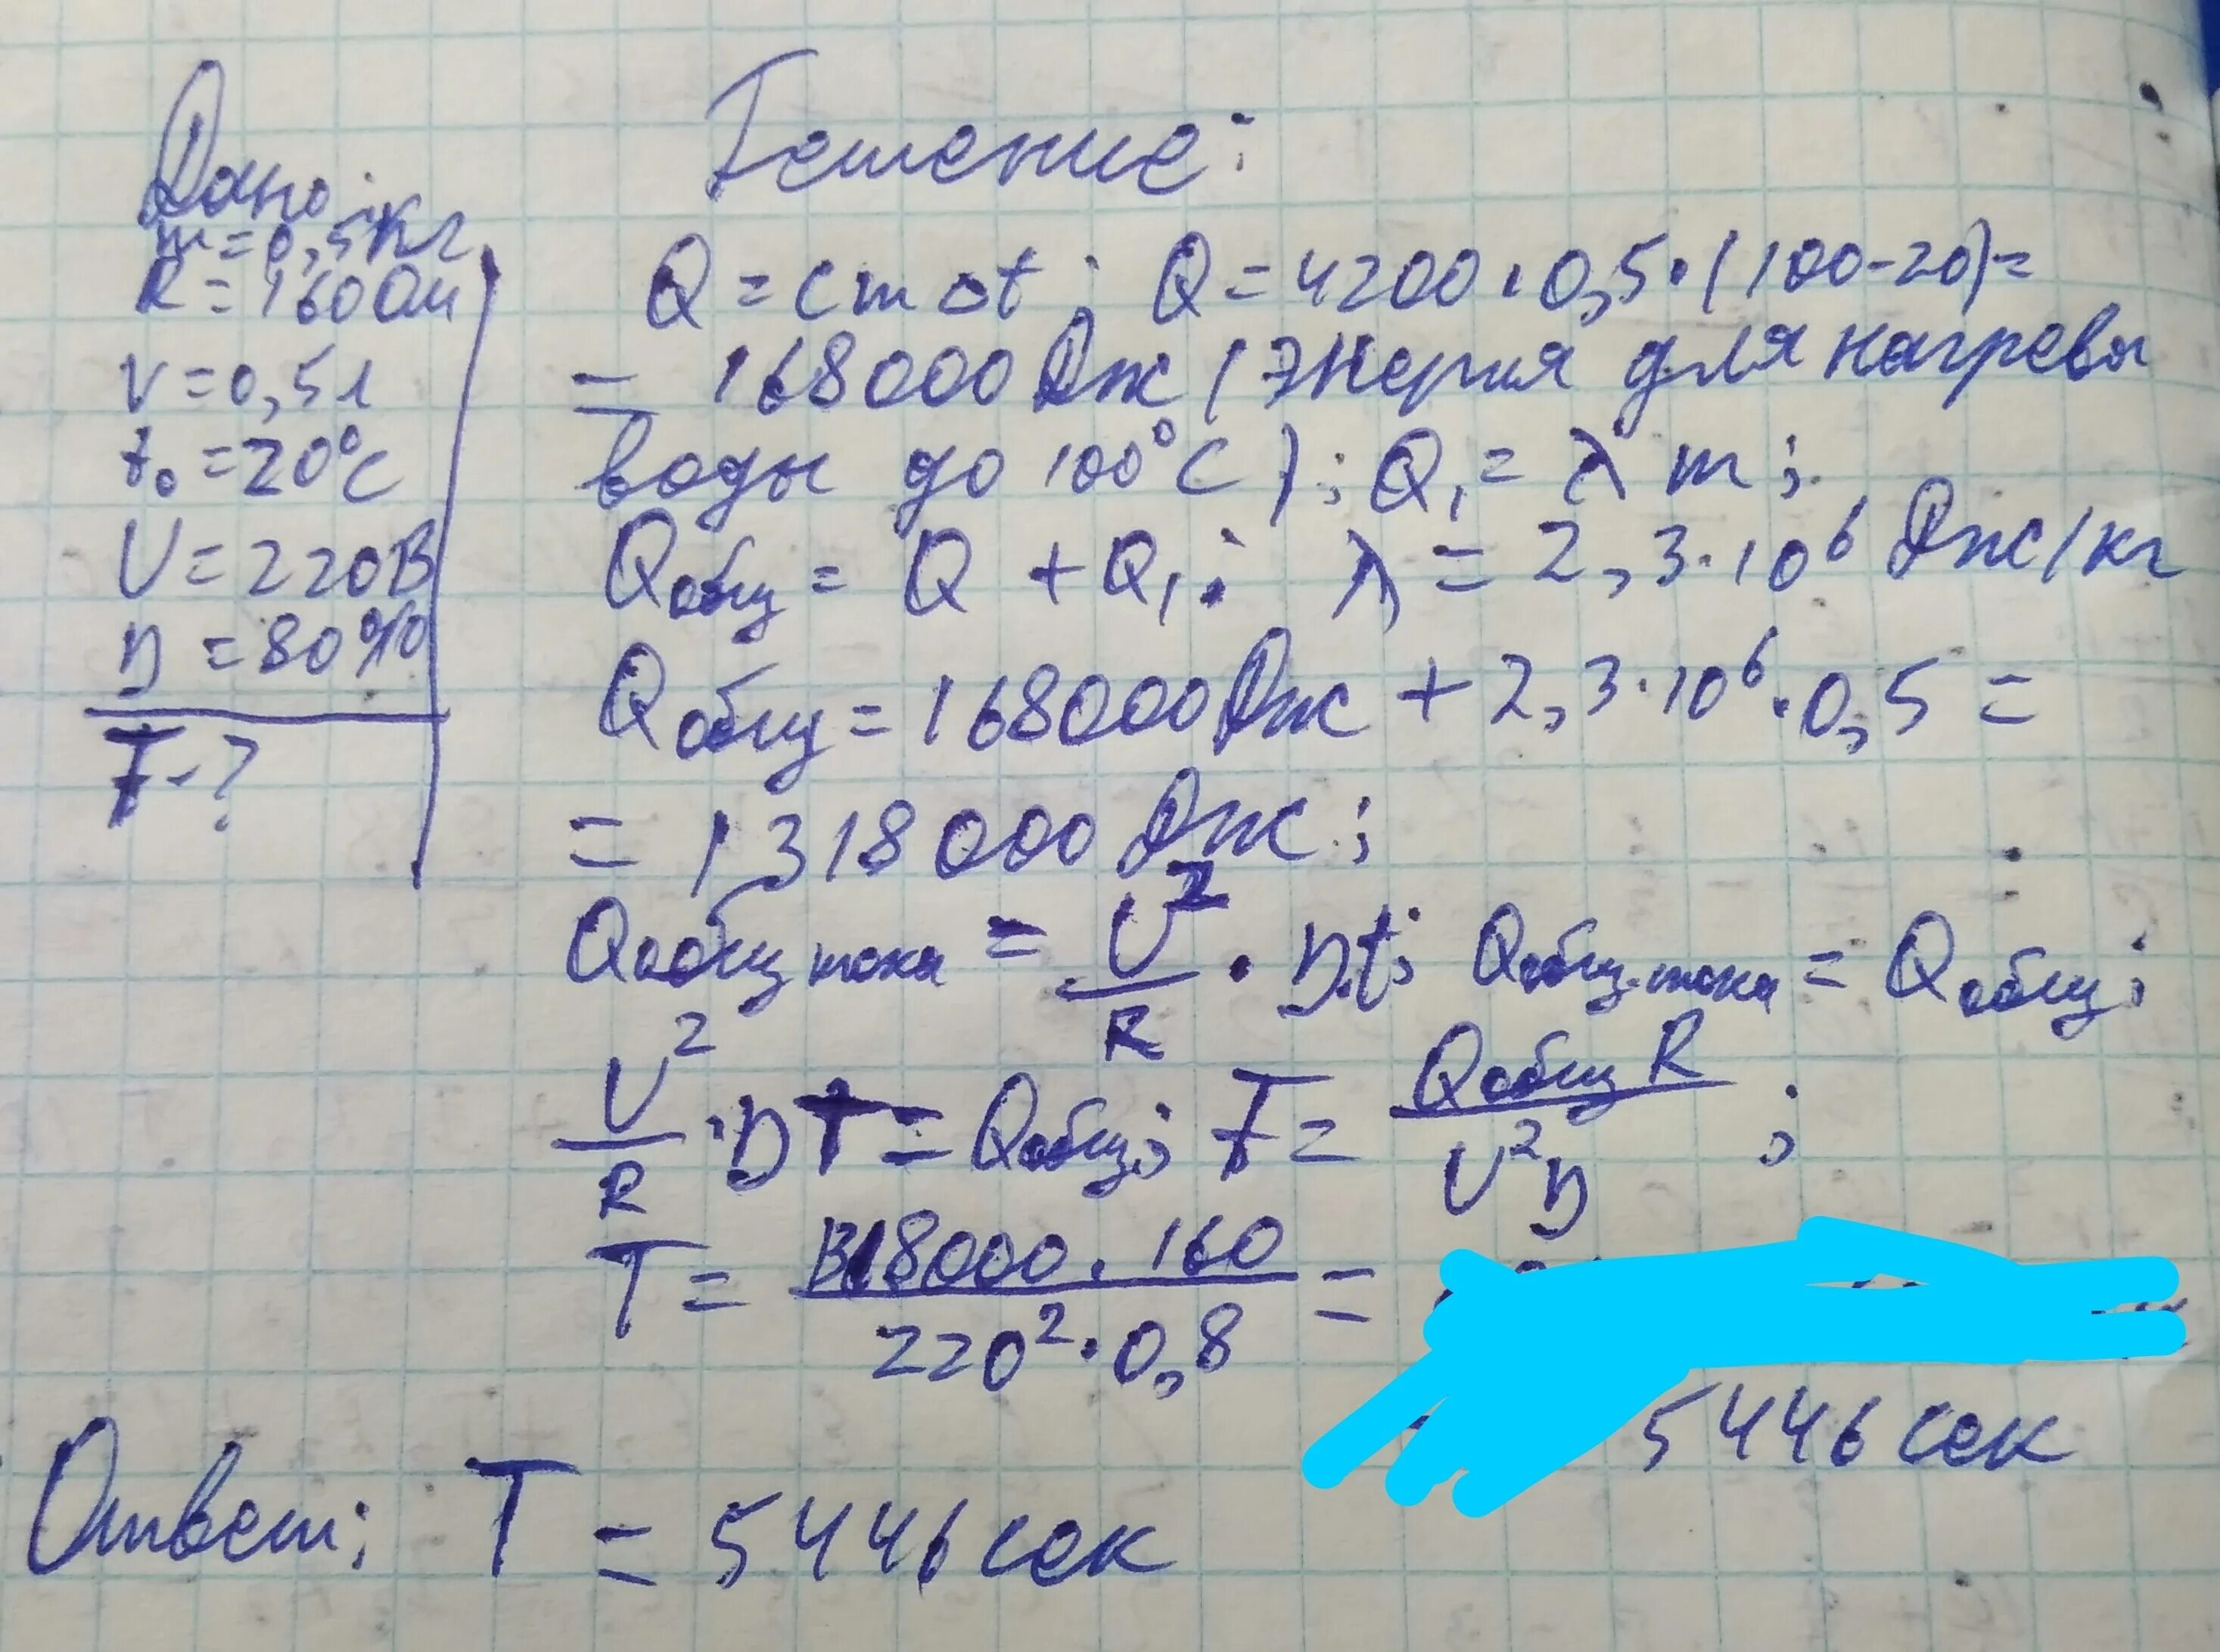 Дано:
m = 0,5 кг
R = 160 Ом
V = 0,5 л
t₀ = 20°C
U = 220 В
η = 80%
T - ?
Решение:
Q = cmΔt; Q = 4200 · 0,5 · (100-20) =
= 168000 Дж (Энергия для нагрева
воды до 100°C); Q₁ = λ m;
Qобщ = Q + Q₁; λ = 2,3 · 10⁶ Дж/кг
Qобщ = 168000 Дж + 2,3 · 10⁶ · 0,5 =
= 1318000 Дж;
Qобщ тока = U²/R · η · t; Qобщ. тока = Qобщ;
U²/R · η T = Qобщ; T = Qобщ R / U² η ;
T = 1318000 · 160 / 220² · 0,8 =
5446 сек
Ответ: T = 5446 сек